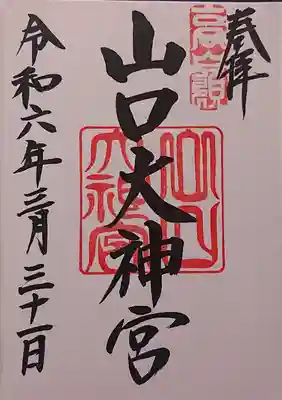 奉拝
高嶺
山口大神宮
山口
大神宮
令和六年三月三十一日